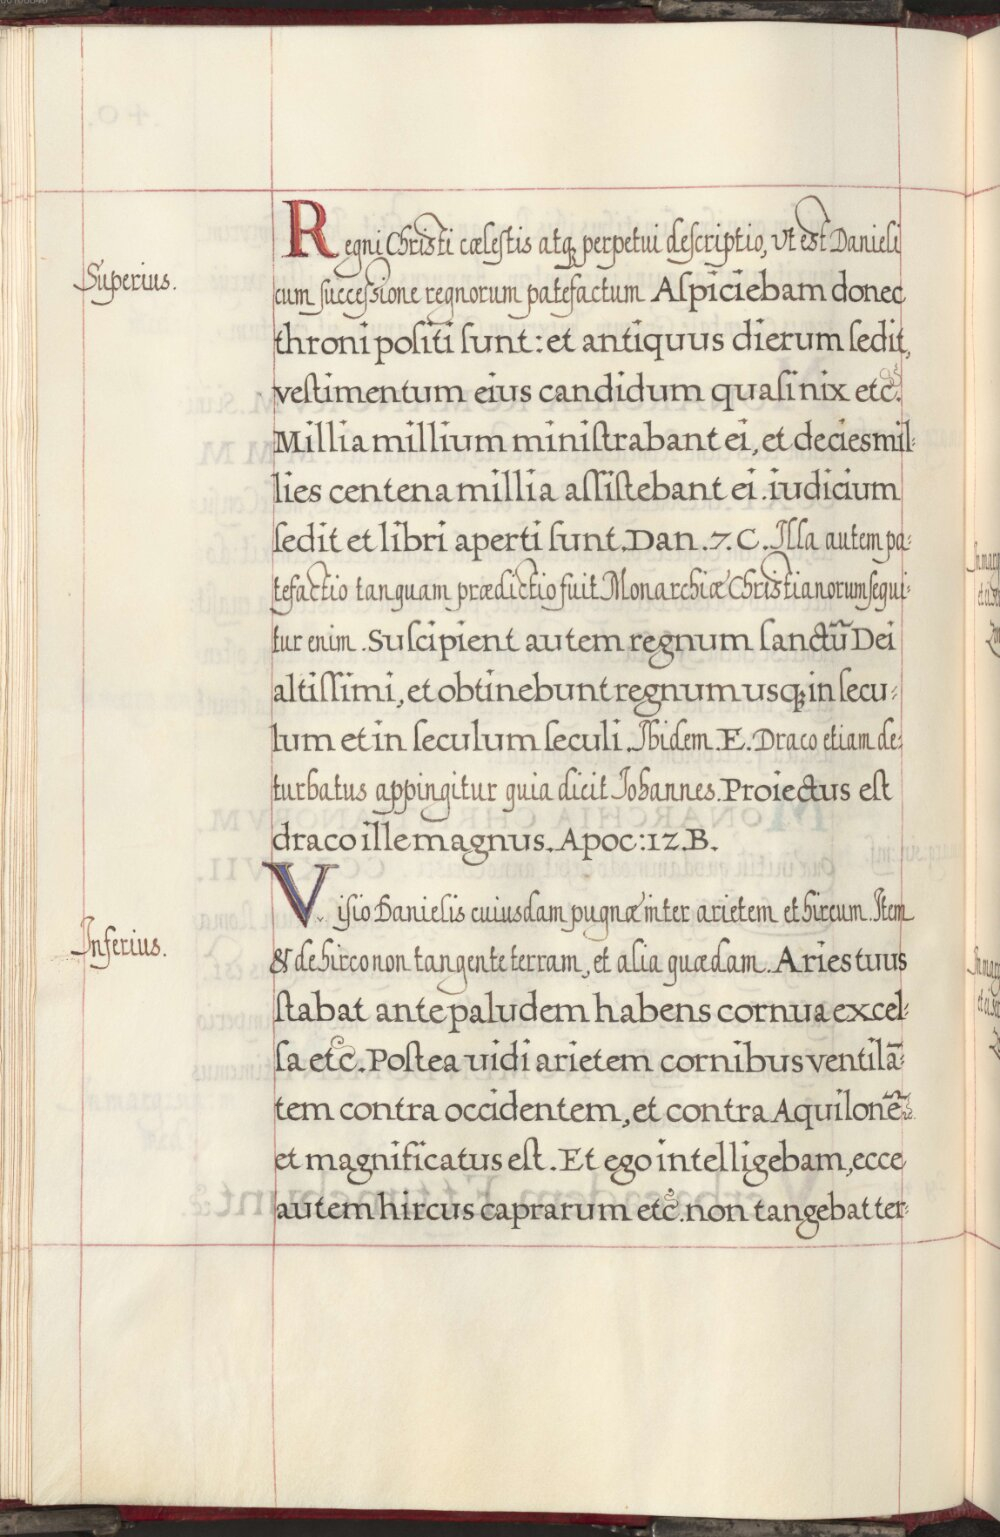 Superius.
Regni Christi cælestis atq; perpetui descriptio, ut est Danieli
cum successione regnorum patefactum Aspiciebam donec
throni positi sunt: et antiquus dierum sedit,
vestimentum eius candidum quasi nix etc.
Millia millium ministrabant ei, et decies mil-
lies centena millia assistebant ei. iudicium
sedit et libri aperti sunt. Dan. 7. C. Illa autem pa-
tefactio tanquam prædictio fuit Monarchiæ Christianorum sequi-
tur enim. Suscipient autem regnum sanctũ Dei
altissimi, et obtinebunt regnum usq; in secu-
lum et in seculum seculi. Ibidem. E. Draco etiam de-
turbatus appingitur quia dicit Johannes. Proiectus est
draco ille magnus. Apoc: 12. B.
Inferius.
Visio Danielis cuiusdam pugnæ inter arietem et hircum. Item
& de hirco non tangente terram, et alia quædam. Aries tuus
stabat ante paludem habens cornua excel-
sa etc. Postea uidi arietem cornibus ventilã-
tem contra occidentem, et contra Aquilonẽ
et magnificatus est. Et ego intelligebam, ecce
autem hircus caprarum etc. non tangebat ter-